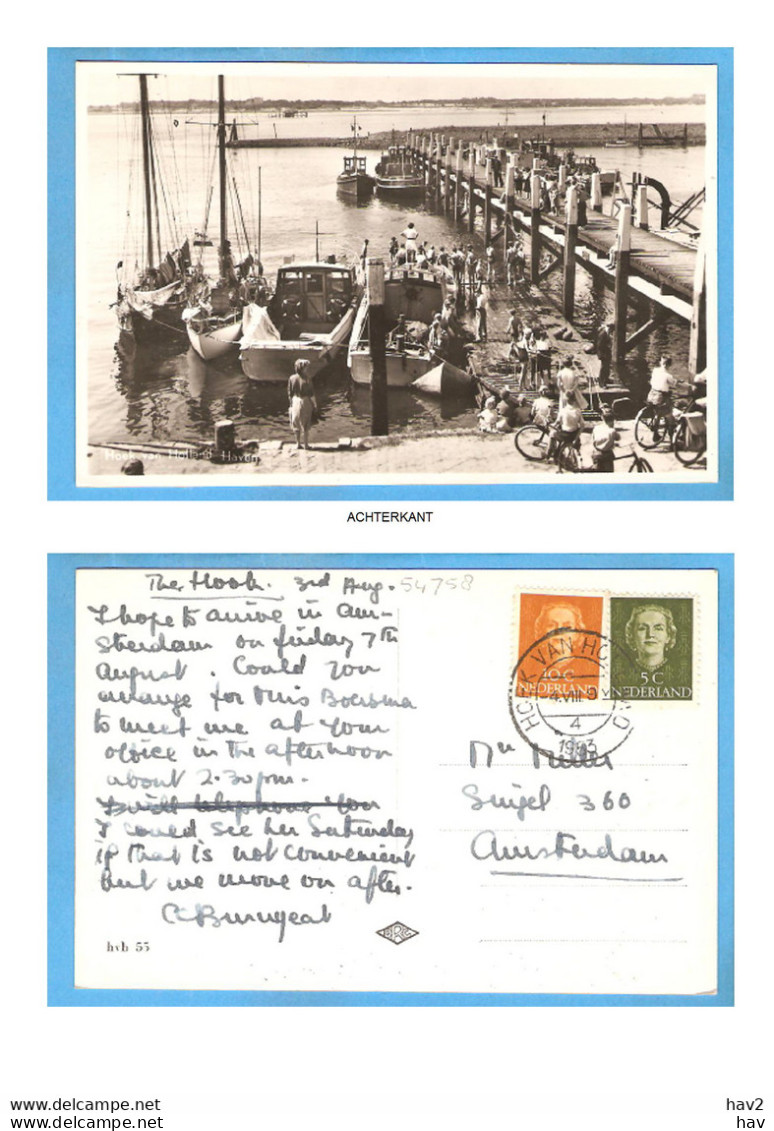 Hoek van Holland Haven
ACHTERKANT
The Hook. 3rd Aug. 54758
I hope to arrive in Am-
sterdam on friday 7th
August. Could you
arrange for Miss Boersma
to meet me at your
office in the afternoon
about 2.30 pm.
I will telephone you
I could see her Saturday
if that is not convenient
but we move on after.
C Burnyeat
hvh 55
10 C
NEDERLAND
5 C
NEDERLAND
HOEK VAN HOLLAND
4.VIII
4
1953
Mr
Singel 360
Amsterdam
hav2
www.delcampe.net
hav
www.delcampe.net